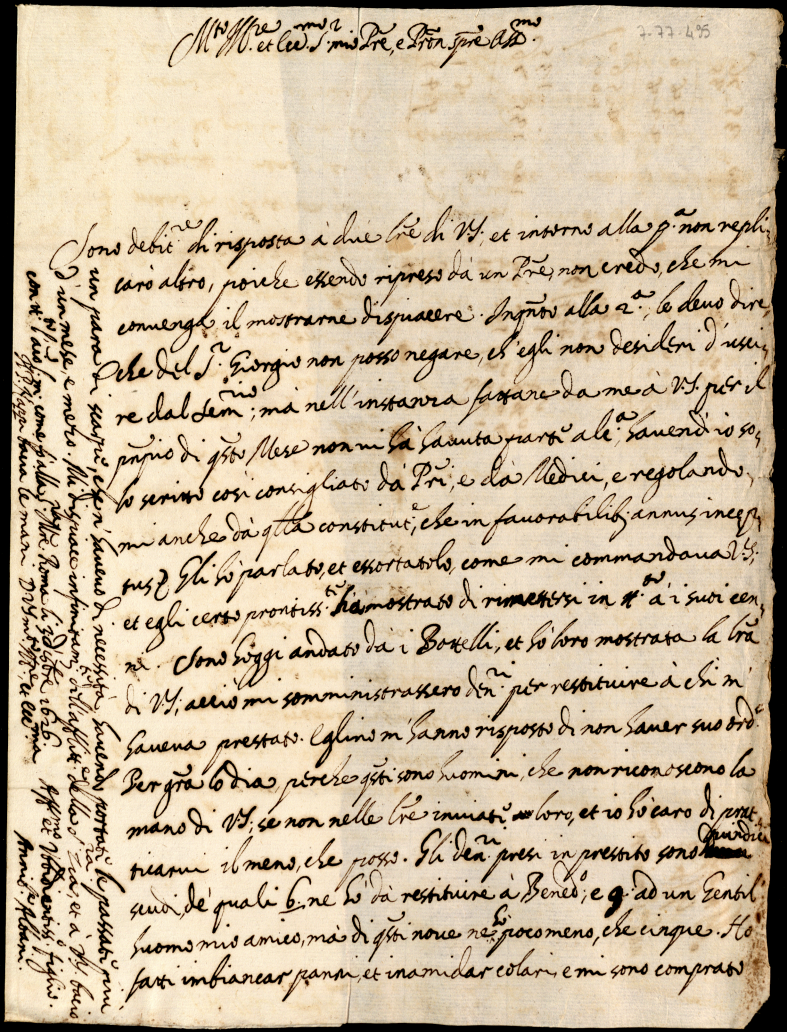 7-77-495
M.to Ill.re et Ecc.mo S.r mio P̃re, e P̃ron spre Oss.mo
Sono debit.re di risposta à due lr̃e di V.S; et intorno alla p.a non repli-
carò altro, poiche essendo ripreso dà un P̃re, non credo, che mi
convenga il mostrarne dispiacere. Inq̃nto alla 2.a, le devo dire,
che del S.r Giorgio non posso negare, ch'egli non desideri d'usci-
re dal Sem.rio; mà nell'instanza fattane da me à V.S. per il
pñpio di q̃sto Mese non vi hà havuta parte alc.a, havend'io so-
lo scritto così consigliato dà P̃ri, e dà Medici, e regolando-
mi anche dà q̃lla constitut.e, che in favorabilib; annus incep-
tus Gli hò parlato, et essortatolo, come mi commandava V.S;
et egli certo prontiss.te hà mostrato di rimettersi in tt.to à i suoi cen-
ni. Sono hoggi andato da i Bottelli, et hò loro mostrata la lr̃a
di V.S; acciò mi somministrassero den.ri per restituire à chi m'
haveva prestato. Eglino m'hanno risposto di non haver suo ord.e
Per gr̃a lo dia, perche q̃sti sono huomini, che non riconoscono la
mano di V.S; se non nelle lr̃e inviate loro, et io hò caro di prat-
ticarvi il meno, che posso. Gli den.ri presi in prestito sono quindici
scudi, de' quali 6. ne hò dà restituire à Bened.o; e 9. ad un Gentil'
huomo mio amico, mà di q̃sti nove ne hò poco meno, che cinque. Hò
fatti imbiancar panni, et inamidar colari, e mi sono comprato
un paro di scarpe, che n'havevo di necessità, havendo portate le passate più
d'un mese, e mezo. Mi dispiace infinitam.te dell'afflitt.e della S.ra Zia, et à V.S. bacio
con tt.i di casa le mani, come fò alla Roma li 1626.
Di V.S. m.to Ill.re et Ecc.ma
Aff.mo et Obedientiss.o figlio.
Annib.e Albani.